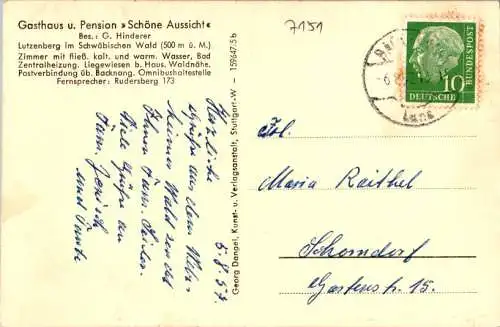 Gasthaus u. Pension »Schöne Aussicht«
Bes.: G. Hinderer
Lutzenberg im Schwäbischen Wald (500 m ü. M.)
Zimmer mit fließ. kalt. und warm. Wasser, Bad
Zentralheizung. Liegewiesen b. Haus. Waldnähe.
Postverbindung üb. Backnang. Omnibushaltestelle
Fernsprecher: Rudersberg 173
7151
10
DEUTSCHE
BUNDESPOST
Georg Dangel, Kunst- u. Verlagsanstalt, Stuttgart-W - 159647.5b
5.8.57.
Herzliche
Grüße aus dem
Wald
Ihnen Fam.
Viele Grüße an
Fam.
und Tante
Frl.
Maria Raithel
Schorndorf
Gartenstr. 15.